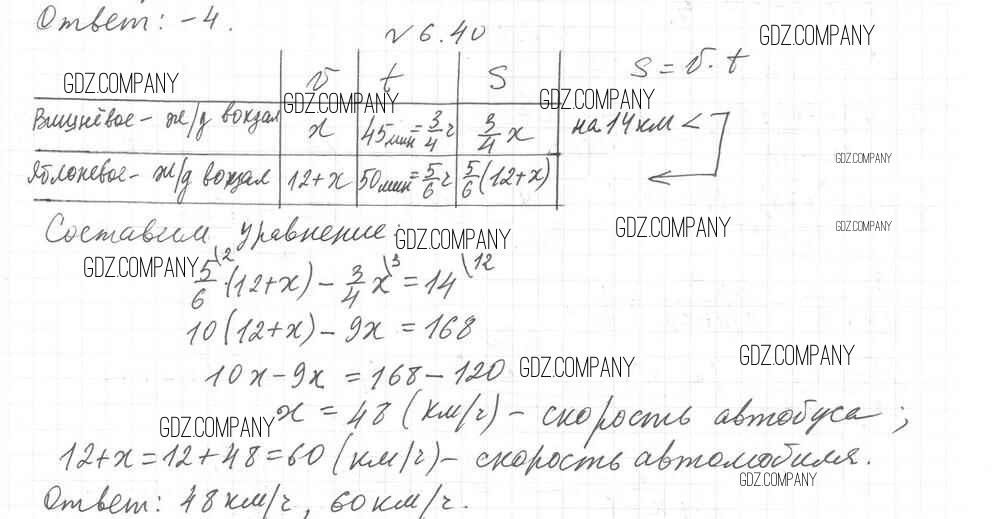 Ответ: -4.
№ 6.40
GDZ.COMPANY
GDZ.COMPANY
v t S S = v · t
GDZ.COMPANY
GDZ.COMPANY
Вишнёвое - ж/д вокзал x 45 мин = 3/4 ч 3/4 x на 14 км <
GDZ.COMPANY
Яблоневое - ж/д вокзал 12+x 50 мин = 5/6 ч 5/6 (12+x)
Составим уравнение:
GDZ.COMPANY
GDZ.COMPANY
GDZ.COMPANY
GDZ.COMPANY
5/6 \2 · (12+x) - 3/4 x \3 = 14 \12
10(12+x) - 9x = 168
GDZ.COMPANY
10x - 9x = 168 - 120
GDZ.COMPANY
x = 48 (км/ч) - скорость автобуса;
GDZ.COMPANY
12+x = 12+48 = 60 (км/ч) - скорость автомобиля.
GDZ.COMPANY
Ответ: 48 км/ч, 60 км/ч.